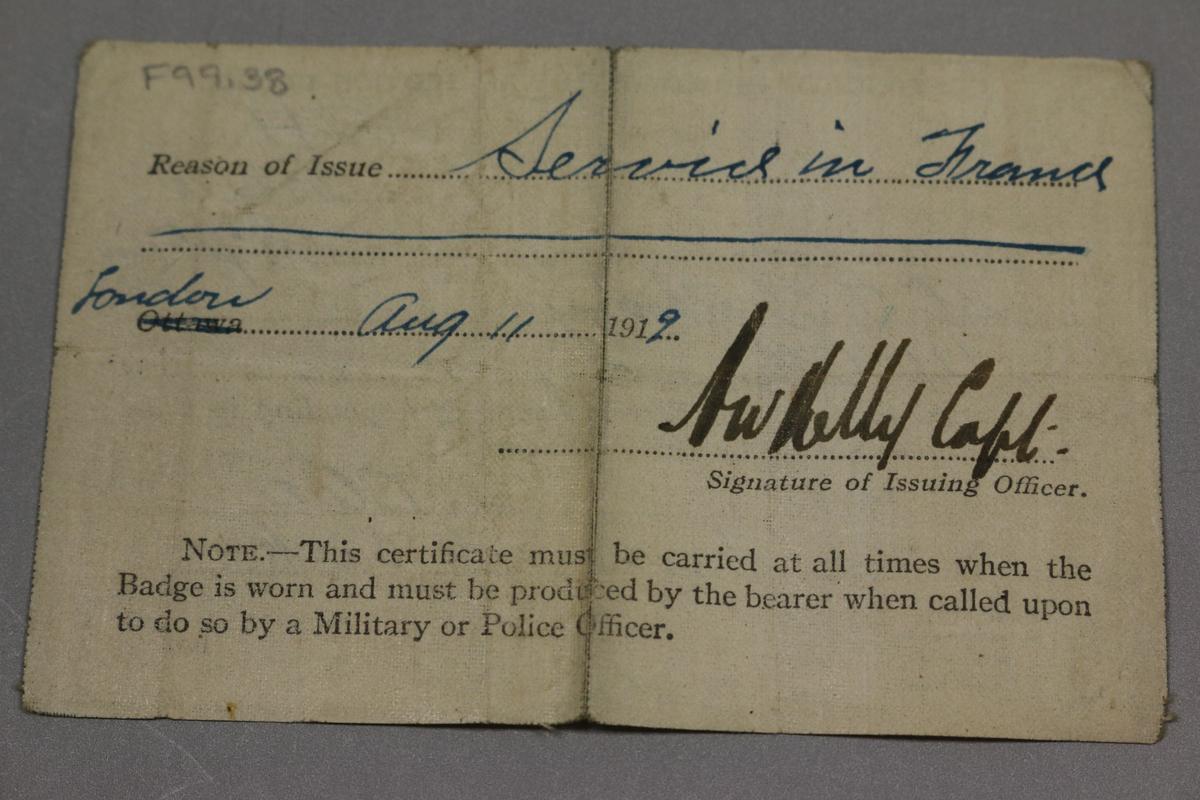 F99.38
Reason of Issue........ Service in France
London
Ottawa........ Aug 11 ........1919..
AW Kelly Capt.
Signature of Issuing Officer.
NOTE.—This certificate must be carried at all times when the
Badge is worn and must be produced by the bearer when called upon
to do so by a Military or Police Officer.